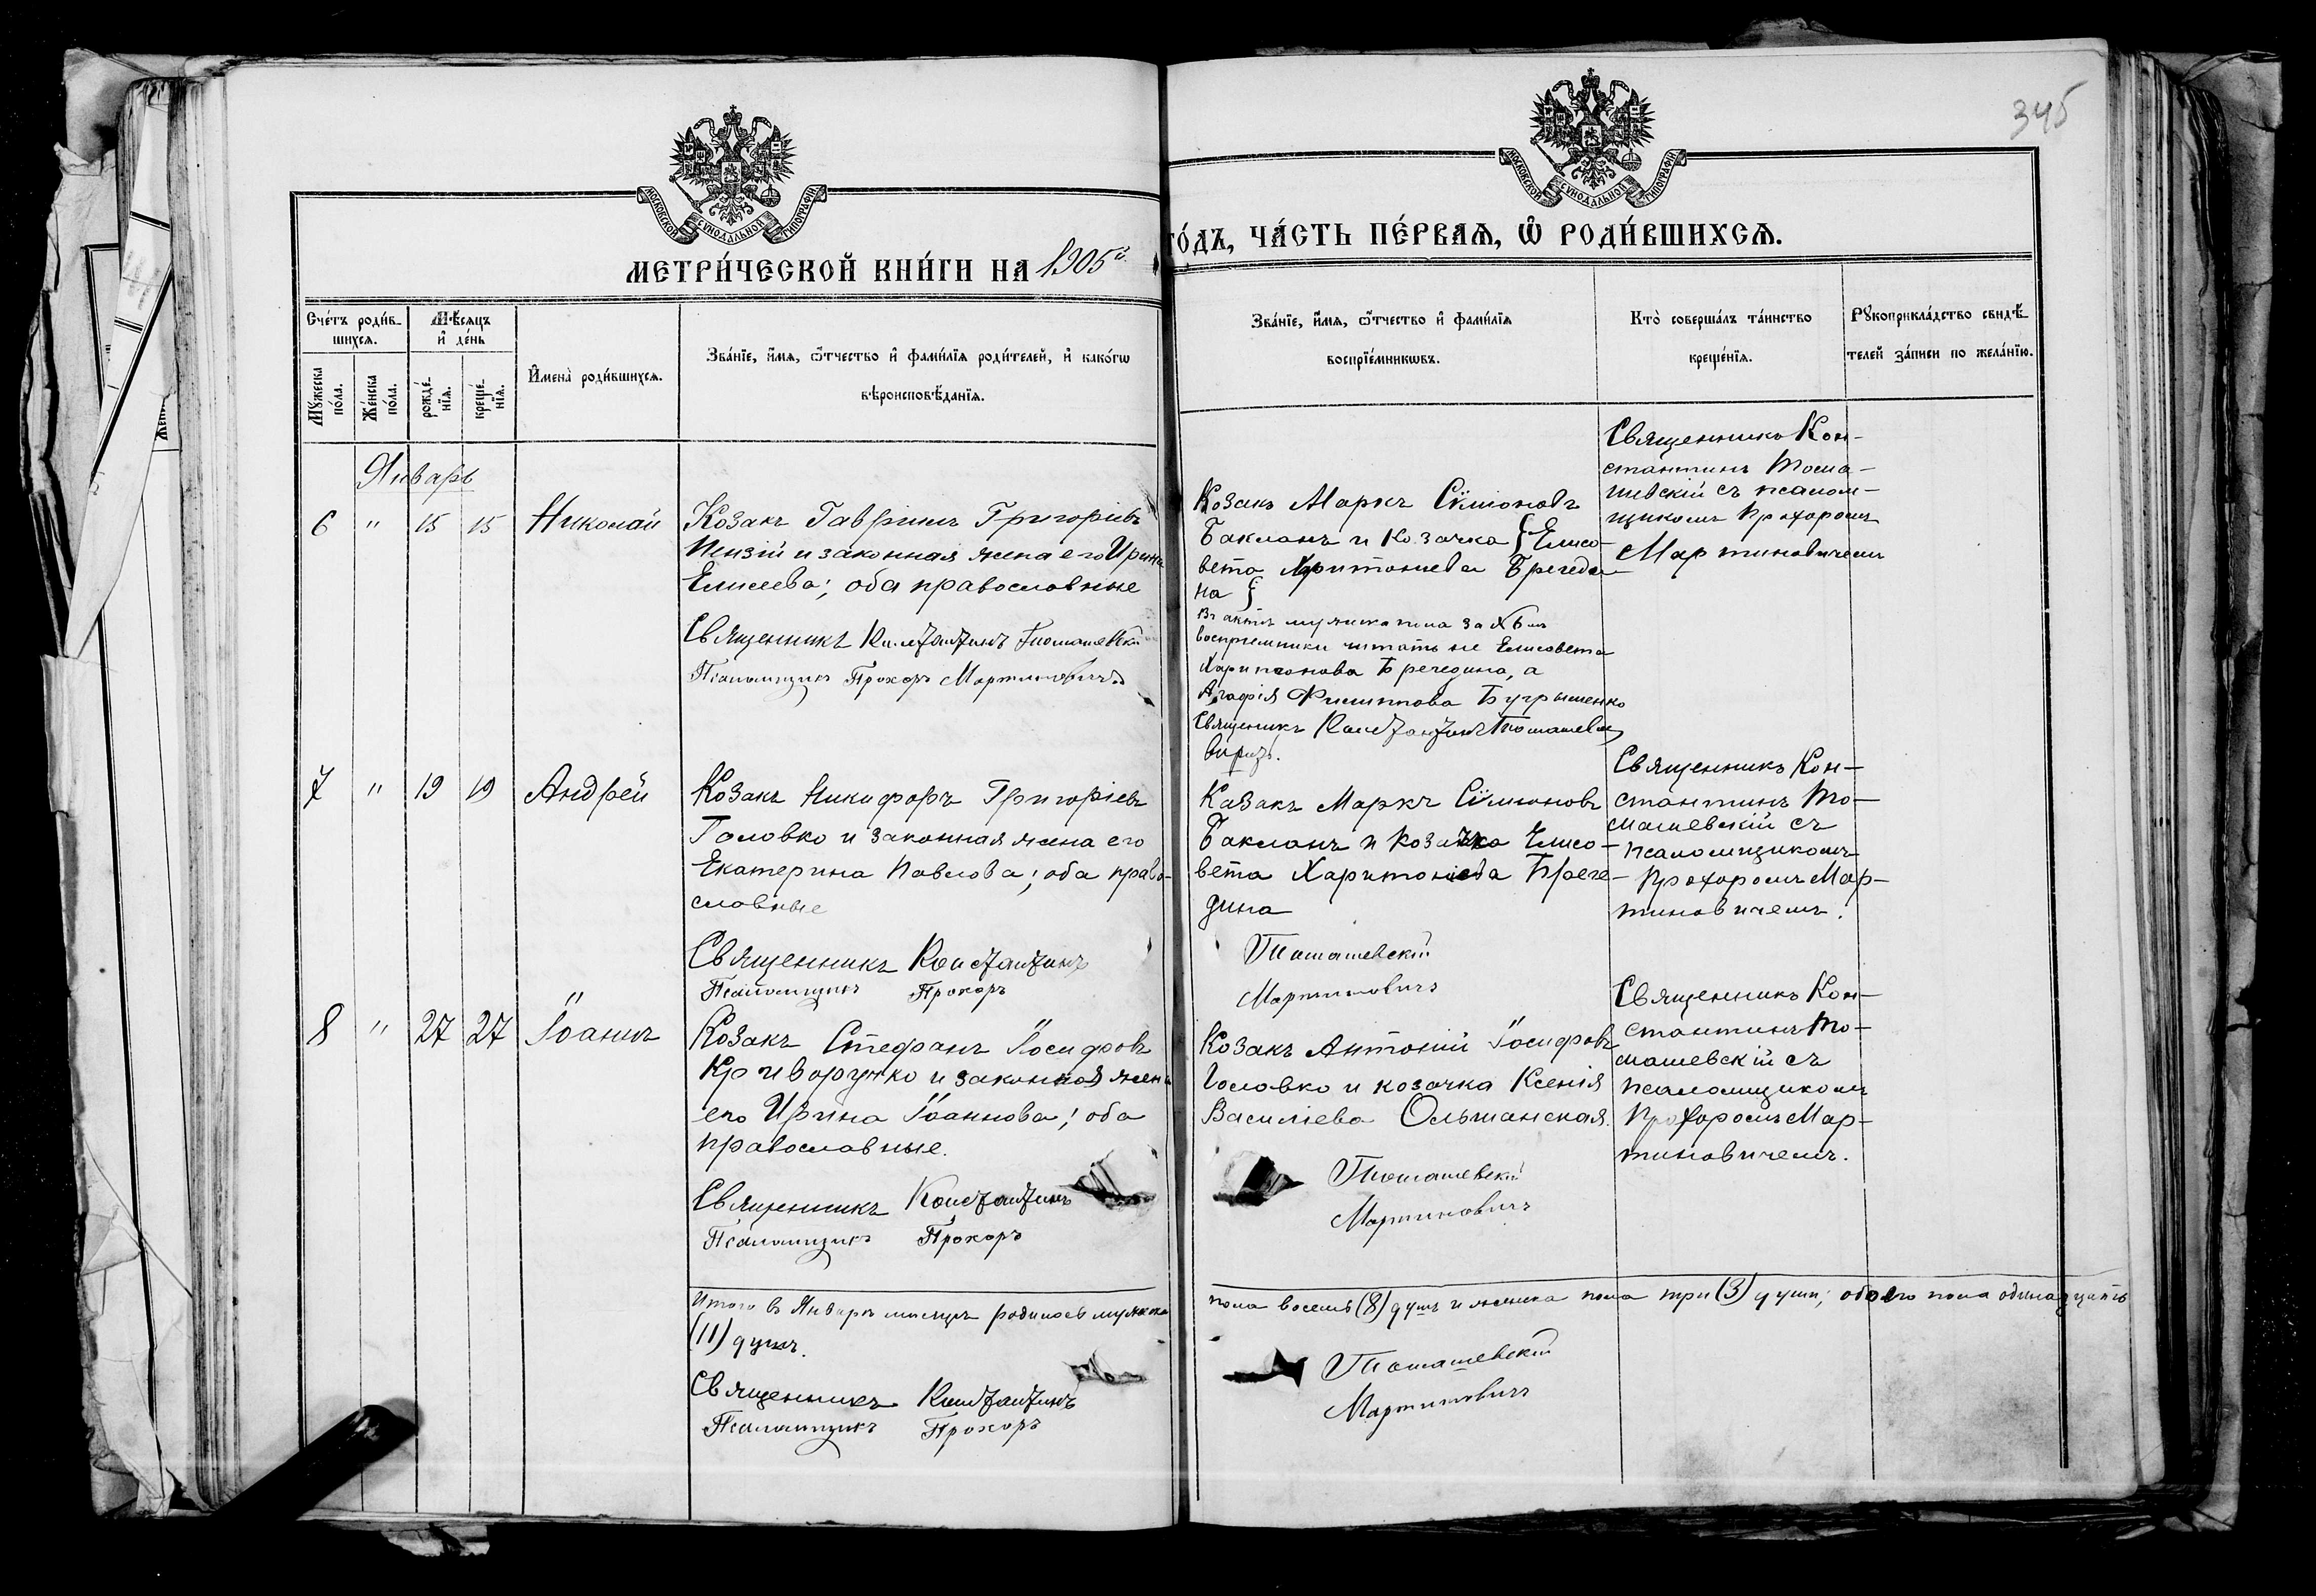 345
МОСКОВСКОЙ СѴНОДАЛЬНОЙ ТИПОГРАФІИ
МОСКОВСКОЙ СѴНОДАЛЬНОЙ ТИПОГРАФІИ
МЕТРИ́ЧЕСКОЙ КНИ́ГИ НА 1905й
ГО́ДЪ, ЧА́СТЬ ПЕ́РВАѦ, Ѽ РОДИ́ВШИХСѦ.
Сче́тъ роди́в-
шихсѧ.
Мѣ́сѧцъ
и҆ де́нь
Мꙋ́жеска
по́ла.
Же́нска
по́ла.
рожде́-
нїѧ.
креще́-
нїѧ.
И҆мена̀ роди́вшихсѧ.
Зва́нїе, и҆́мѧ, ѻ҆́тчество и҆ фами́лїѧ роди́телей, и҆ како́гѡ
вѣроисповѣ́данїѧ.
Зва́нїе, и҆́мѧ, ѻ҆́тчество и҆ фами́лїѧ
воспрїе́мникѡвъ.
Кто̀ соверша́лъ та́инство
креще́нїѧ.
Рꙋкоприкла́дство свидѣ́-
телей за́писи по жела́нїю.
Январь
6 " 15 15 Николай
Козакъ Гавріилъ Григоріевъ
и законная жена его Ирина
Елисеева; оба православные
Священникъ Константинъ Томашевскій
Псаломщикъ Прохоръ Мартиновичъ
Козакъ Маркъ Сѵмоновъ
Бакланъ и козачка {Елисо-
вета Харитониева Брегеди-
на}
Въ актѣ мужска пола за №6мъ
воспріемники читать не Елисавета
Харитонова Брегедина, а
Агафія Филиппова
Священникъ Константинъ Томашевскій
Священникъ Кон-
стантинъ Тома-
шевскій съ псалом-
щикомъ Прохоромъ
Мартиновичемъ
7 " 19 19 Андрей
Козакъ Никифоръ Григоріевъ
Головко и законная жена его
Екатерина Павлова; оба право-
славные
Священникъ Константинъ
Псаломщикъ Прохоръ
Казакъ Маркъ Сѵмоновъ
Бакланъ и козачка Елисо-
вета Харитониева Бреге-
дина
Томашевскій
Мартиновичъ
Священникъ Кон-
стантинъ То-
машевскій съ
псаломщикомъ
Прохоромъ Мар-
тиновичемъ.
8 " 27 27 Іоаннъ
Козакъ Стефанъ Іосифовъ
Криворучко и законная жена
его Ирина Іоаннова; оба
православные.
Священникъ Константинъ
Псаломщикъ Прохоръ
Козакъ Антоній Іосифовъ
Головко и козачка Ксенія
Василіева Ольшанская.
Томашевскій
Мартиновичъ
Священникъ Кон-
стантинъ То-
машевскій съ
псаломщикомъ
Прохоромъ Мар-
тиновичемъ.
Итого въ Январѣ мѣсяцѣ родилось мужска
пола восемь (8) душъ и женска пола три (3) души; обоего пола одинадцать
(11) душъ.
Священникъ Константинъ
Томашевскій
Псаломщикъ Прохоръ
Мартиновичъ